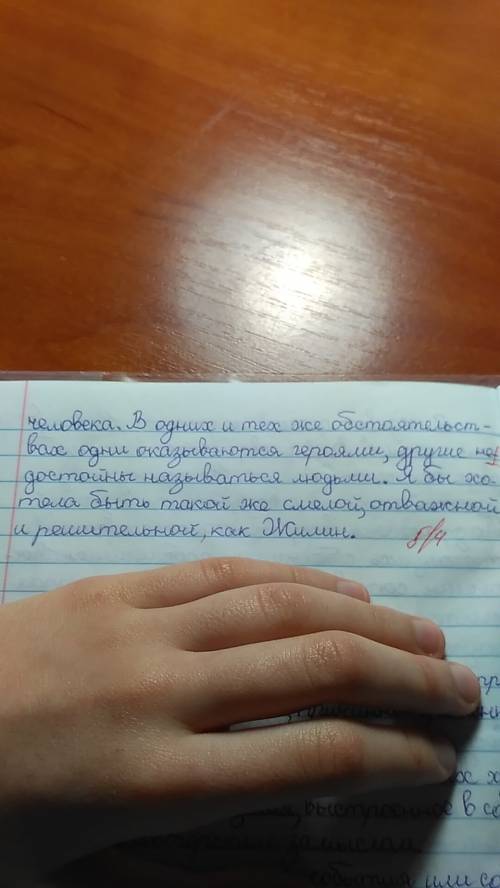 человека. В одних и тех же обстоятельст-
вах одни оказываются героями, другие не
достойны называться людьми. Я бы хо-
тела быть такой же смелой, отважной
и решительной, как Жилин.
5/4
пр
х х
выстроенное в се
замыслом.
события или со